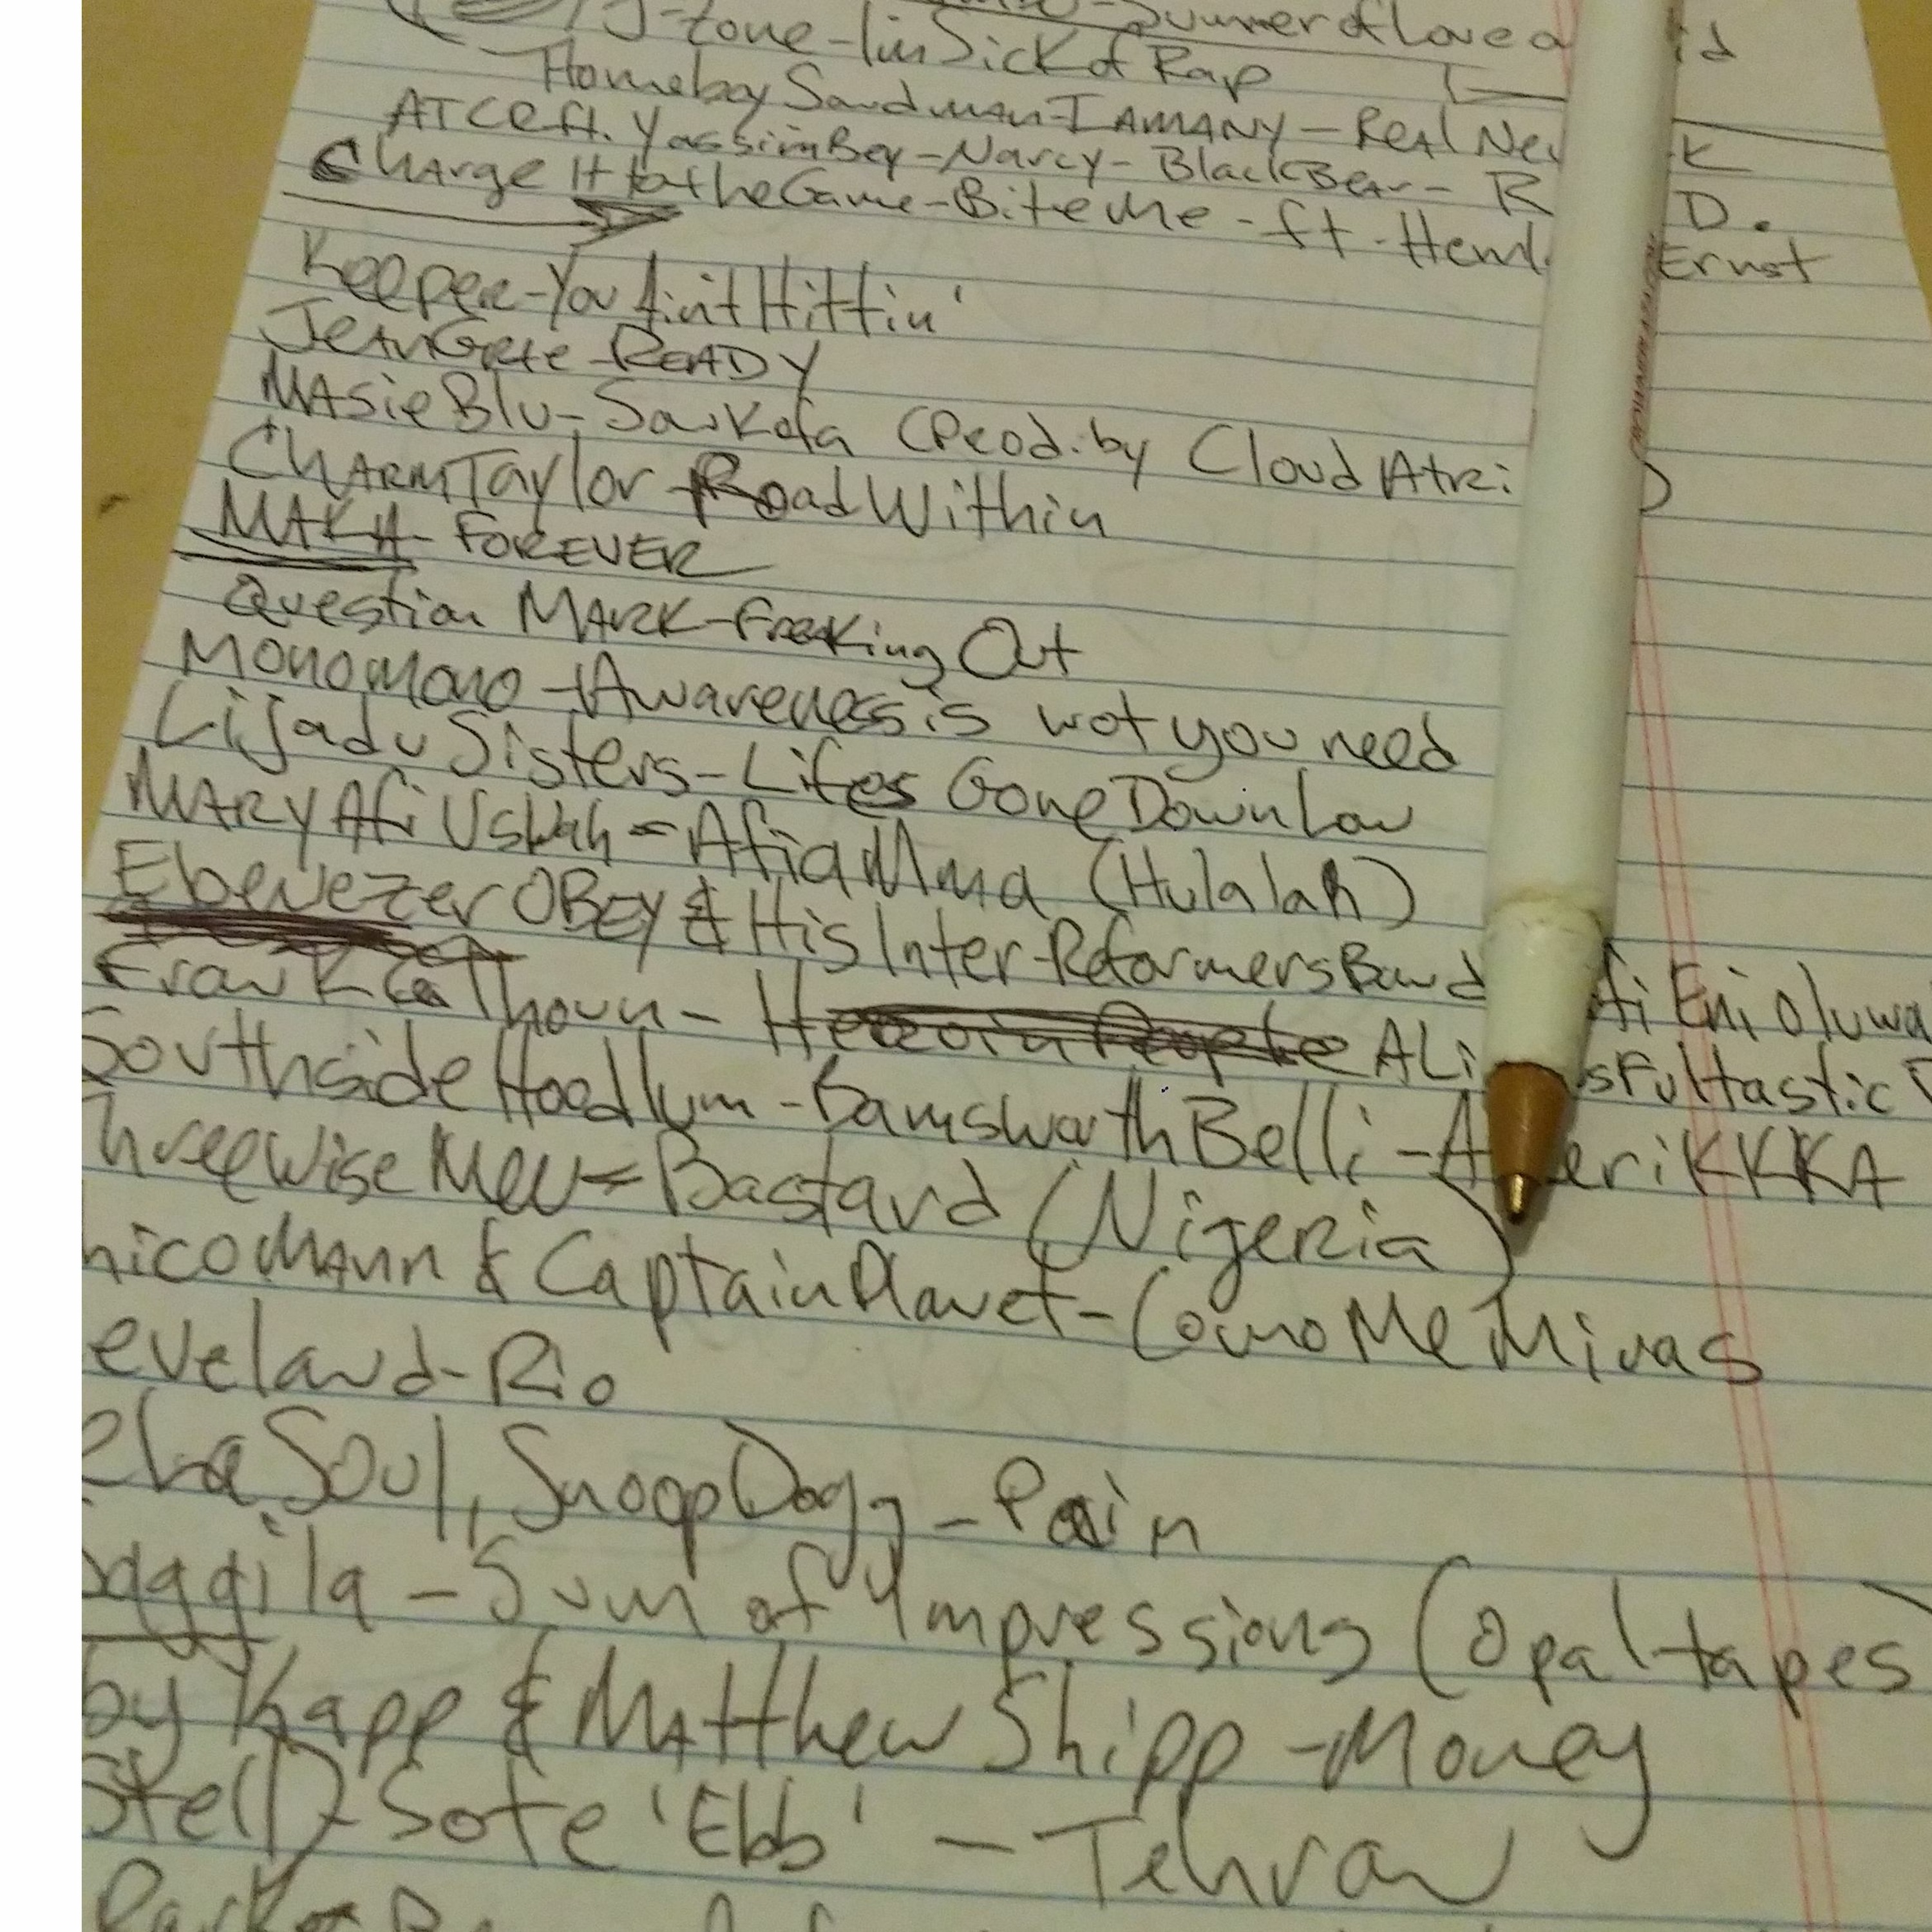 Summer of Love a
J-Zone - I'm Sick of Rap
Homeboy Sandman - I AM ANY - Real Ne K
ATCQ ft. Yassiin Bey - Narcy - Black Bear - R D.
Charge It to the Game - Bite Me - ft - Heml Ernst
Keeper - You Aint Hittin'
Jean Grae - READY
Masie Blu - Sankofa (Prod. by Cloud Atri )
Charm Taylor - Road Within
MAKA - FOREVER
Question MARK - Freaking Out
Mono mono - Awareness is wot you need
Lijadu Sisters - Lifes Gone Down Low
MARY Afi Usuah = Afia Mma (Hulalah)
Ebenezer OBEY & His Inter-Reformers Band fi Eni Oluwa
Frank Calhoun - ALi sFultastic
Southside Hoodlum - Bamsworth Belli - A eriKKKA
hree Wise Men = Bastard (Nigeria)
hico Mann & Captain Planet - Como Me Miras
eveland - Rio
e La Soul, Snoop Dogg - Pain
aggila - Sum of 4 Impressions (Opal tapes
by Kapp & Matthew Shipp - Money
Stell) Sote 'Ebb' - Tehran